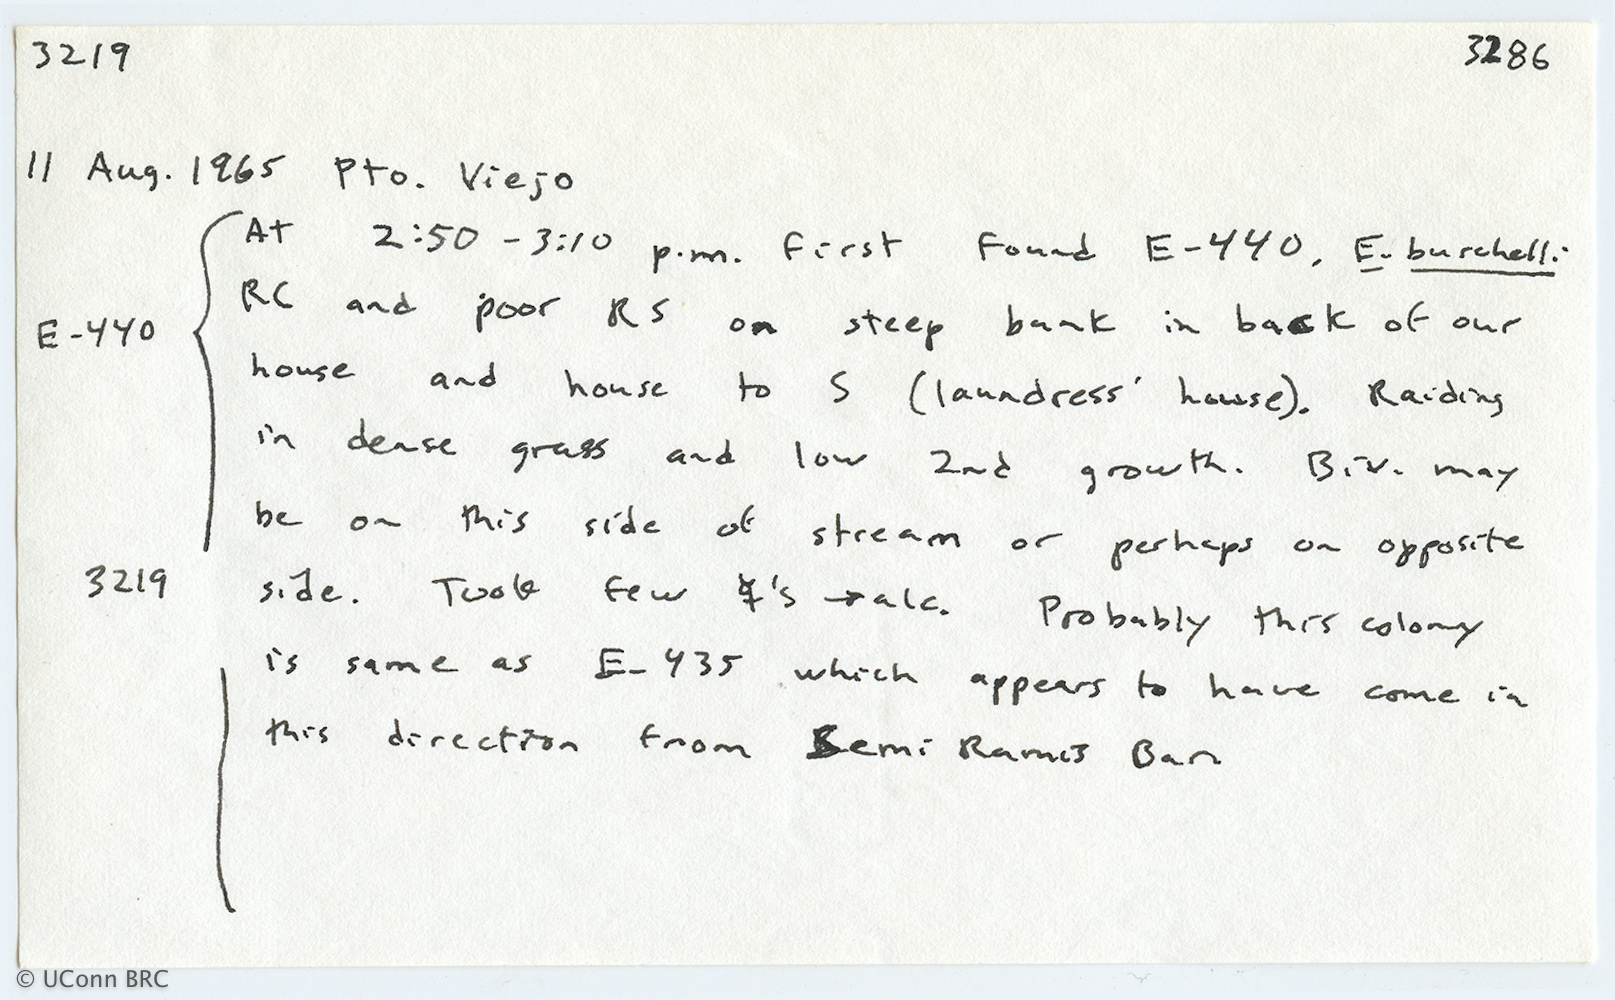 3219 3286
11 Aug. 1965 Pto. Viejo
At 2:50-3:10 p.m. first found E-440, E. burchelli:
RC and poor RS on steep bank in back of our
E-440
house and house to S (laundress' house). Raiding
in dense grass and low 2nd growth. Biv. may
be on this side of stream or perhaps on opposite
3219
side. Took few ☿'s → alc. Probably this colony
is same as E-435 which appears to have come in
this direction from Semi Ramis Bar
© UConn BRC